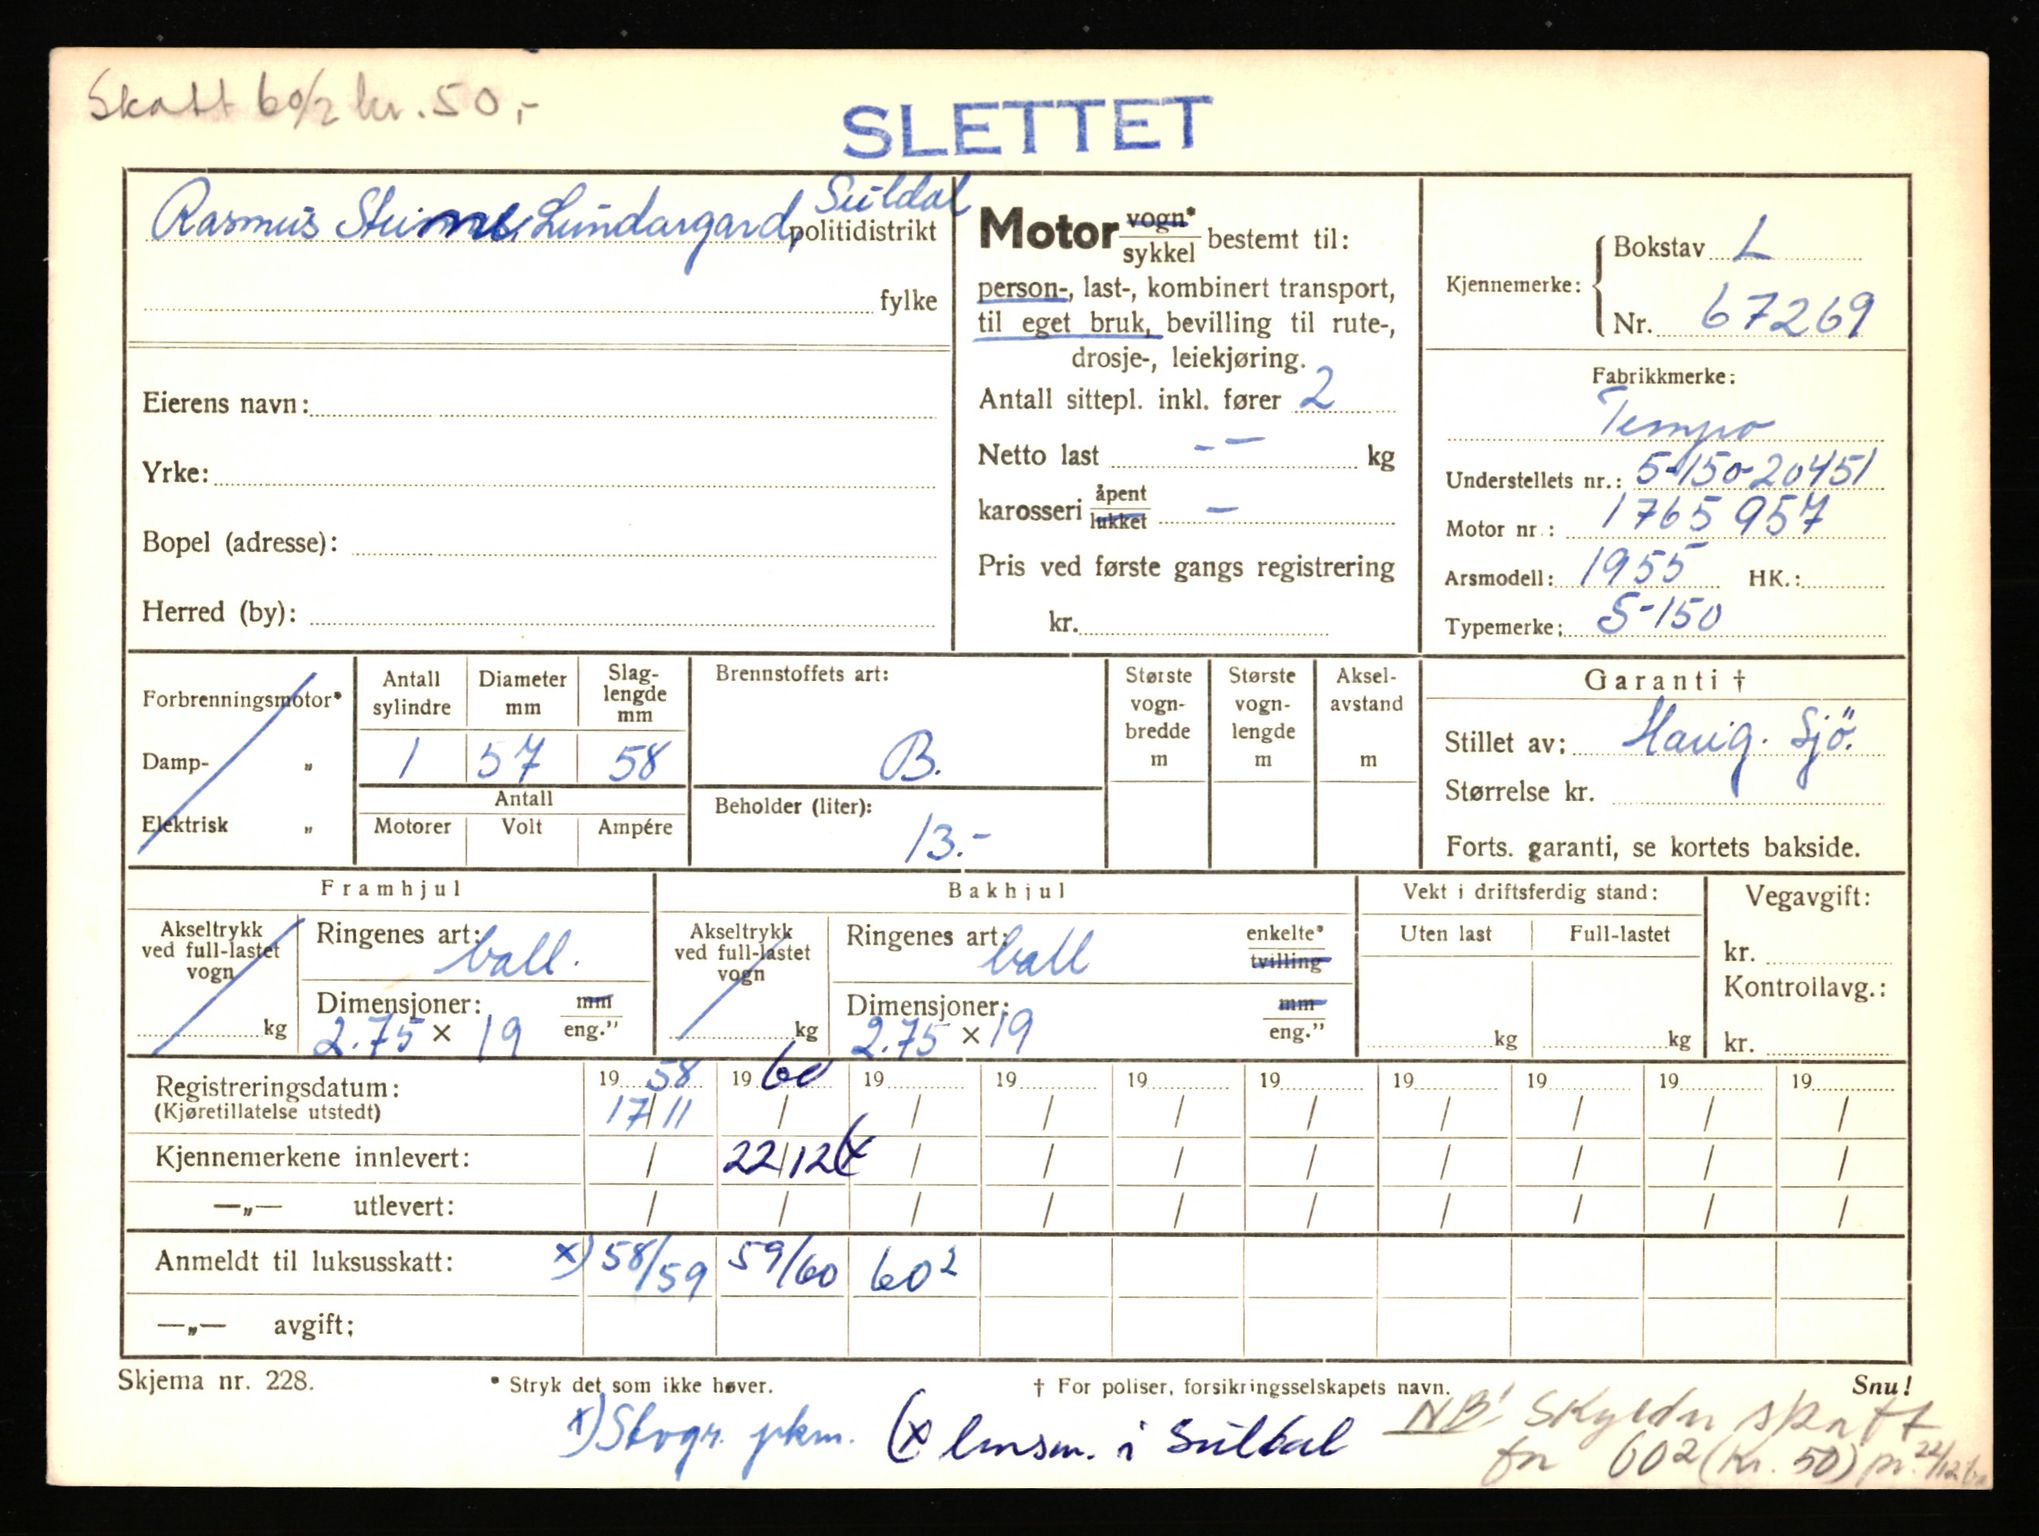 Skatt 60/2 kr. 50,-
SLETTET
Rasmus Lundargard, Suldal politidistrikt
fylke
Eierens navn:
Yrke:
Bopel (adresse):
Herred (by):
Motor vogn* sykkel bestemt til:
person-, last-, kombinert transport,
til eget bruk, bevilling til rute-,
drosje-, leiekjøring.
Antall sittepl. inkl. fører 2
Netto last - - kg
karosseri åpent lukket -
Pris ved første gangs registrering
kr.
Kjennemerke: Bokstav L
Nr. 67269
Fabrikkmerke:
Tempo
Understellets nr.: 5-150-20451
Motor nr.: 1765957
Arsmodell: 1955 HK.:
Typemerke: S-150
Forbrenningsmotor*
Damp- „
Elektrisk „
Antall sylindre Diameter mm Slaglengde mm
1 57 58
Antall
Motorer Volt Ampére
Brennstoffets art:
B.
Beholder (liter):
13.-
Største vognbredde m
Største vognlengde m
Akselavstand m
Garanti †
Stillet av: Haug. Sjö.
Størrelse kr.
Forts. garanti, se kortets bakside.
Framhjul
Akseltrykk ved full-lastet vogn kg
Ringenes art: ball.
Dimensjoner: mm eng."
2.75 × 19
Bakhjul
Akseltrykk ved full-lastet vogn kg
Ringenes art: ball enkelte* tvilling
Dimensjoner: mm eng."
2.75 × 19
Vekt i driftsferdig stand:
Uten last Full-lastet
kg kg
Vegavgift:
kr.
Kontrollavg.:
kr.
Registreringsdatum: 19 58 19 60 19 19 19 19 19 19 19 19
(Kjøretillatelse utstedt) 17/11 / / / / / / / / /
Kjennemerkene innlevert: / 22/12 (x / / / / / / / /
—„— utlevert: / / / / / / / / / /
Anmeldt til luksusskatt: x) 58/59 59/60 60²
—„— avgift;
Skjema nr. 228. * Stryk det som ikke høver. † For poliser, forsikringsselskapets navn. Snu!
x) Stvgr. pkm. (x lensm. i Suldal
NB! Skylder skatt
for 60² (kr. 50) pr. 22/12.60